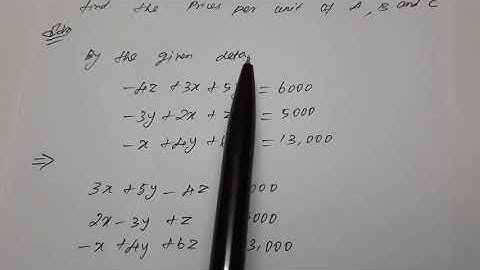 find the prices per unit of A, B and C
Soln
By the given data
-4z + 3x + 5y = 6000
-3y + 2x + z = 5000
-x + 4y + = 13,000
⇒
3x + 5y - 4z 000
2x - 3y + z 000
-x + 4y + 6z 3,000